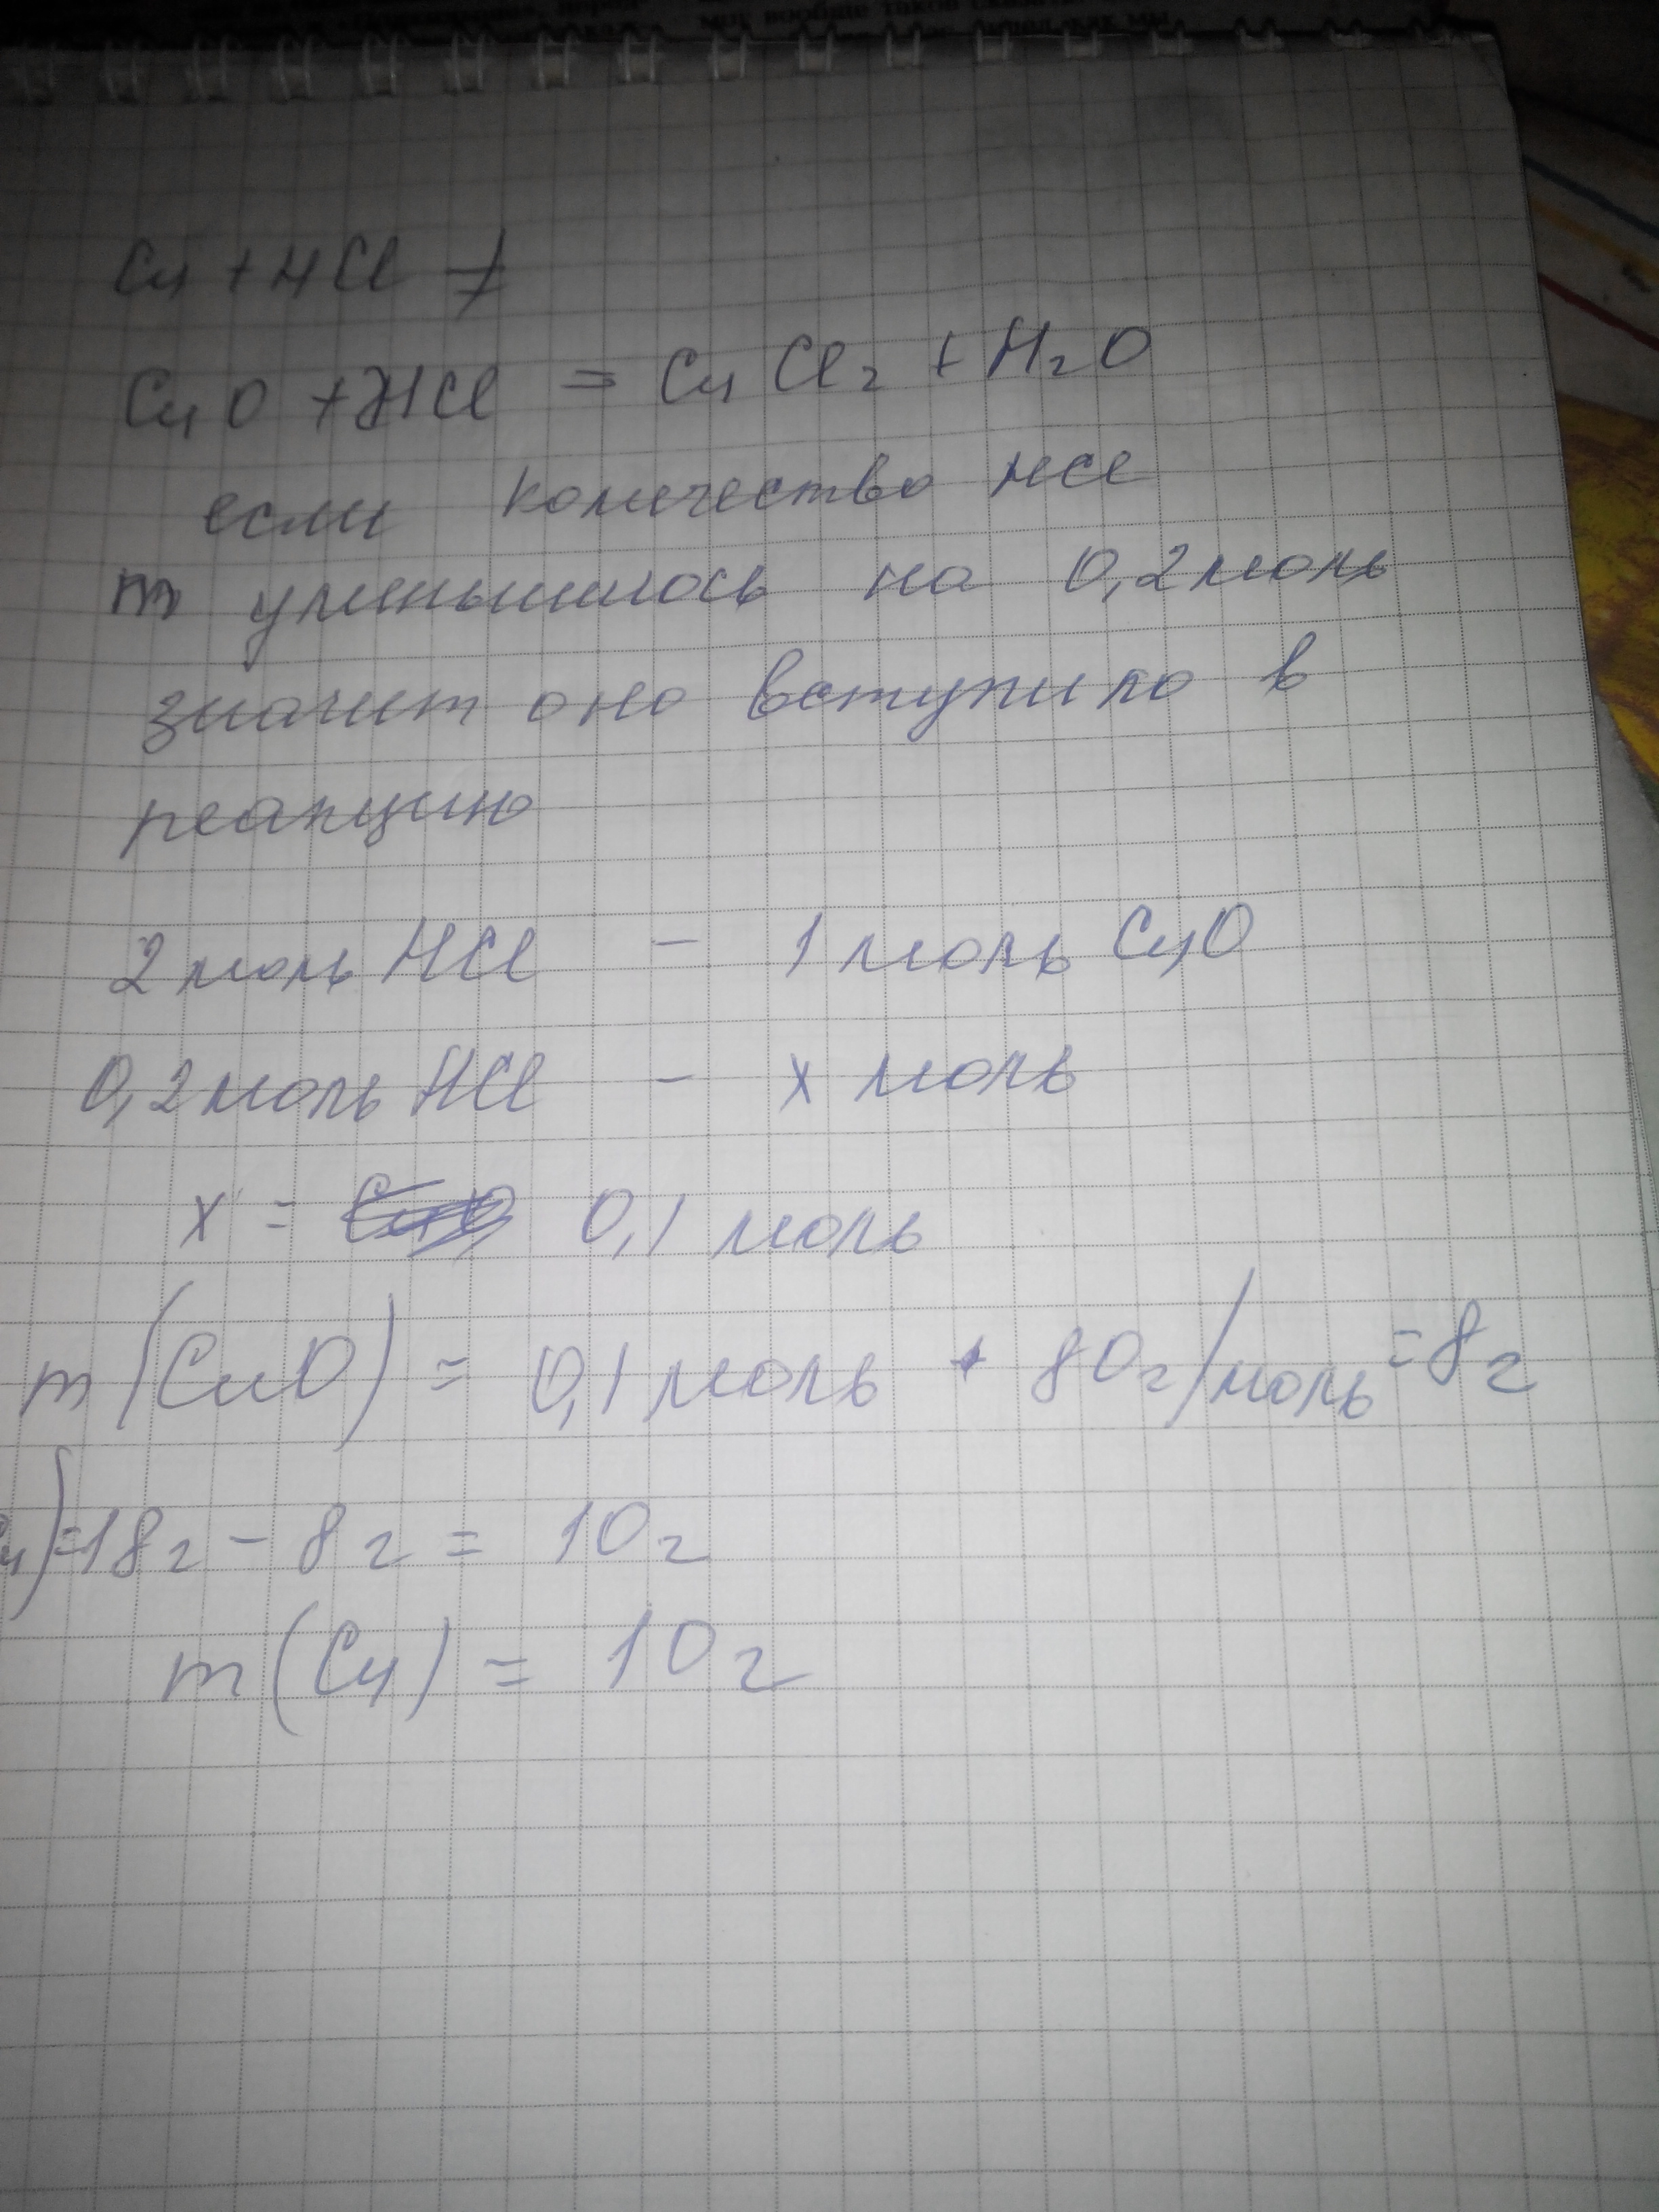 Cu + HCl ≠
CuO + 2HCl = CuCl₂ + H₂O
если количество HCl
m уменьшилось на 0,2 моль
значит оно вступило в
реакцию
2 моль HCl – 1 моль CuO
0,2 моль HCl – x моль
x = 0,1 моль
m(CuO) = 0,1 моль · 80 г/моль = 8 г
u) = 18 г – 8 г = 10 г
m(Cu) = 10 г